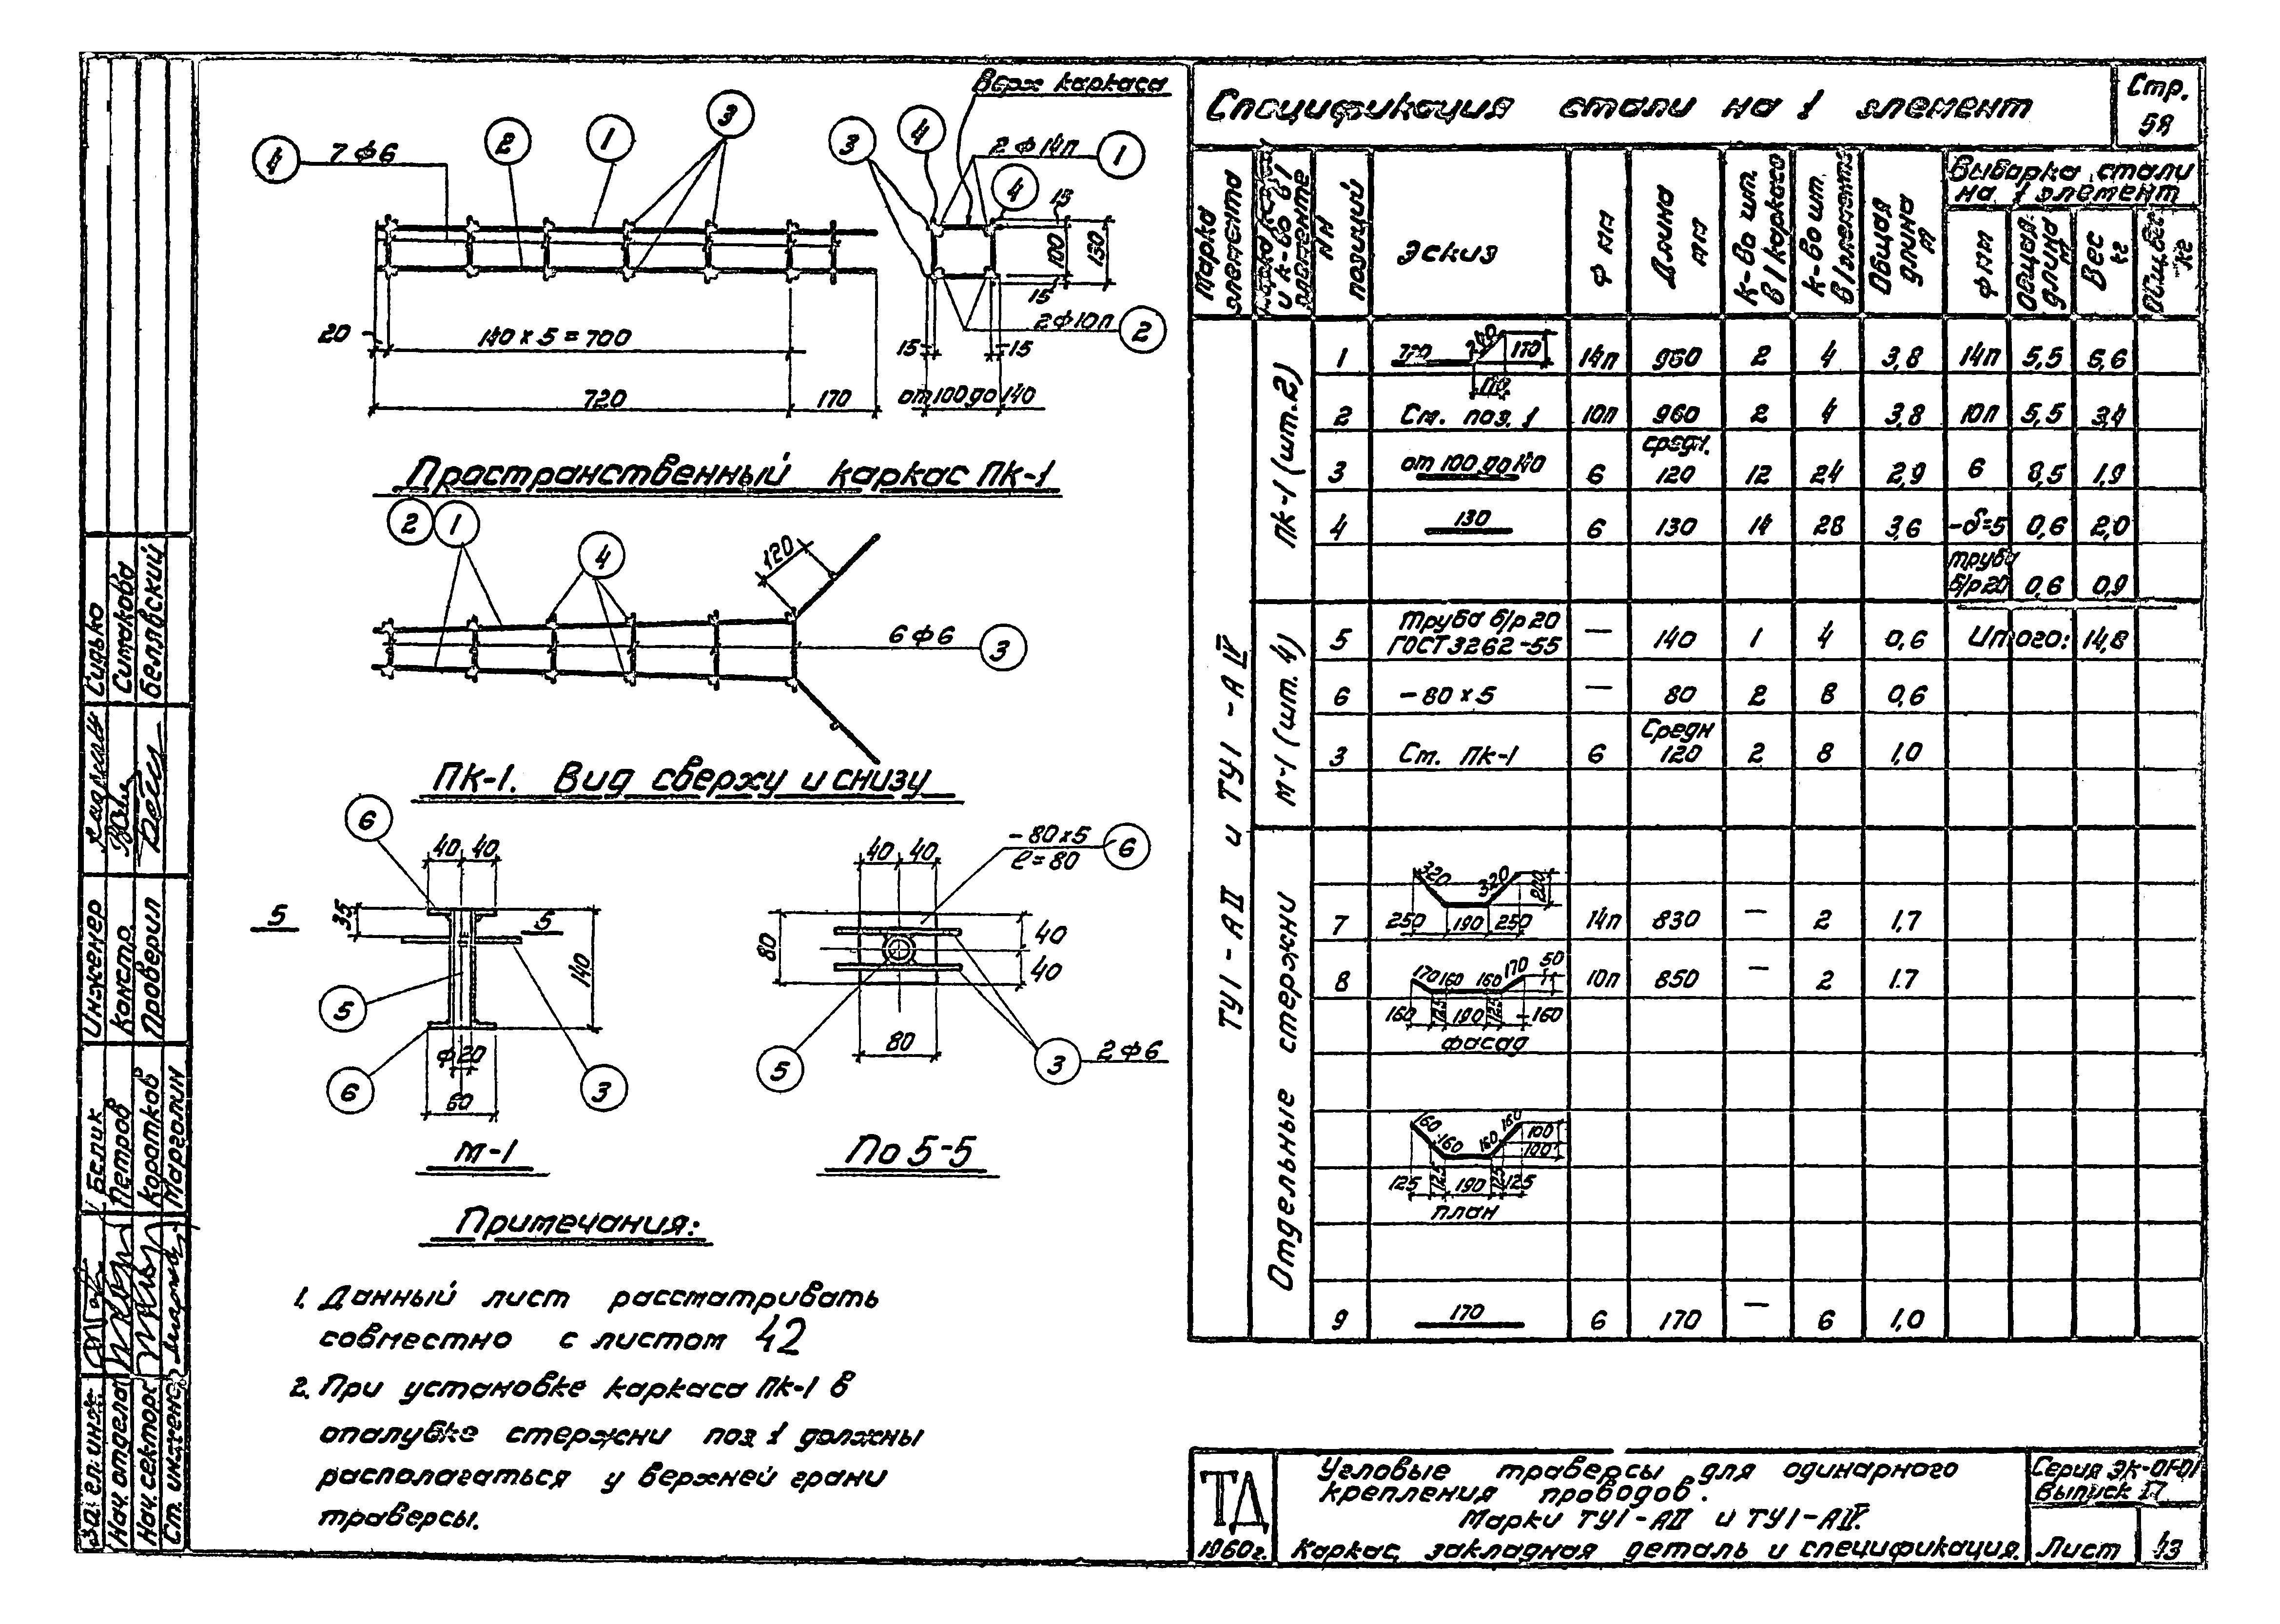 Верх каркаса
4 7ф6 2 1 3 3 4 2ф14п 1
4
15
100
130
15
2ф10п 2
20 140×5=700 15 15
720 170 от 100 до 140
Пространственный каркас ПК-1
2 1 4 120
6ф6 3
ПК-1. Вид сверху и снизу
6 40 40 40 40 -80×5 6
ℓ=80
5 35 5 80 40
140 40
5 ф20 80 2ф6
6 60 3 5 3
М-1 По 5-5
Примечания:
1. Данный лист рассматривать
совместно с листом 42
2. При установке каркаса ПК-1 в
опалубке стержни поз 1 должны
располагаться у верхней грани
траверсы.
Спецификация стали на 1 элемент
Стр.
58
Марка элемента
Марка и к-во в 1 элементе
NN позиций
Эскиз
Ф мм
Длина мм
К-во шт. в 1 каркасе
К-во шт. в 1 элементе
Общая длина м
Выборка стали
на 1 элемент
Ф мм
Общая длина м
Вес кг
Общ. вес кг
ТУ1-АII и ТУ1-АIV
ПК-1 (шт.2)
1 720 240 170 170 14п 960 2 4 3,8 14п 5,5 6,6
2 См. поз. 1 10п 960 2 4 3,8 10п 5,5 3,4
3 от 100 до 140 6 средн. 120 12 24 2,9 6 8,5 1,9
4 130 6 130 14 28 3,6 -δ=5 0,6 2,0
труба
б/р20 0,6 0,9
М-1 (шт. 4)
5 Труба б/р 20 ГОСТ 3262-55 — 140 1 4 0,6 Итого: 14,8
6 -80×5 — 80 2 8 0,6
3 Ст. ПК-1 6 Средн 120 2 8 1,0
Отдельные стержни
7 320 320 200 250 190 250 14п 830 — 2 1.7
8 170 160 160 170 50 10п 850 — 2 1.7
160 125 190 125 160
фасад
160 160 160 160 100 100
125 125 190 125 125
план
9 170 6 170 — 6 1,0
ТД
1960г.
Угловые траверсы для одинарного
крепления проводов.
Марки ТУ1-АII и ТУ1-АIV.
Каркас, закладная деталь и спецификация.
Серия ЭК-01-01
Выпуск II
Лист 43
Зам. гл. инж. Белик
Нач. отдела Петров
Нач. сектора Коротков
Ст. инженер Марголин
Инженер Сунько
Констр. Симакова
Проверил Белявский